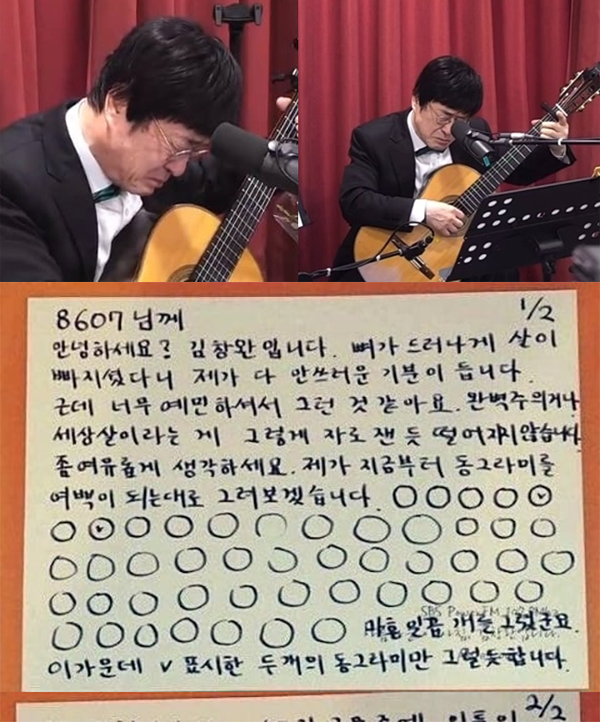 8607님께 1/2
안녕하세요? 김창완입니다. 뼈가 드러나게 살이
빠지셨다니 제가 다 안쓰러운 기분이 듭니다.
근데 너무 예민하셔서 그런 것 같아요. 완벽주의거나
세상살이라는 게 그렇게 자로 잰 듯 떨어지지 않습니다.
좀 여유롭게 생각하세요. 제가 지금부터 동그라미를
여백이 되는대로 그려보겠습니다.
SBS PowerFM
마흔 일곱 개를 그렸군요.
이 가운데 v 표시한 두개의 동그라미만 그럴듯 합니다.
2/2